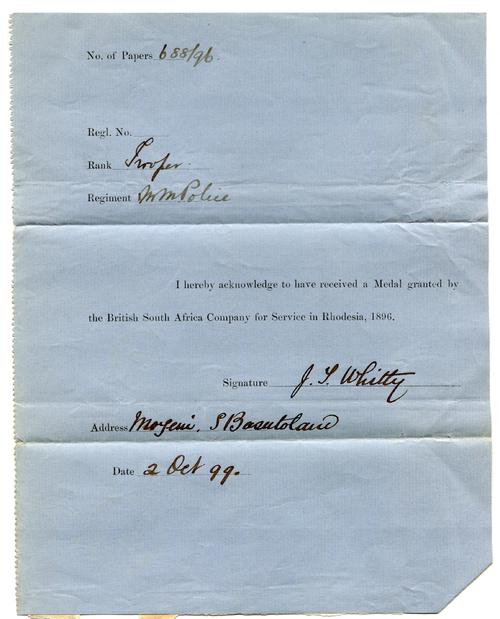 No. of Papers 688/96.
Regl. No.
Rank Trooper.
Regiment M M Police
I hereby acknowledge to have received a Medal granted by
the British South Africa Company for Service in Rhodesia, 1896.
Signature J. S. Whitty
Address S Basutoland
Date 2 Oct 99.